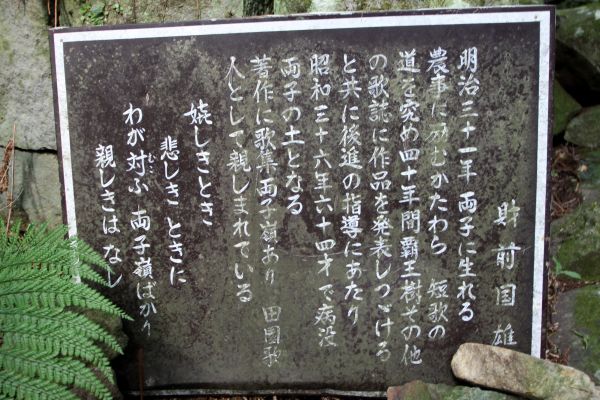 財前国雄
明治三十一年 両子に生れる
農事にはげむかたわら 短歌の
道を究め四十年間覇王樹その他
の歌誌に作品を発表しつづける
と共に後進の指導にあたり
昭和三十六年六十四才で病没
両子の土となる
著作に歌集両子嶺あり 田園歌
人として親しまれている
嬉しきとき
悲しき ときに
わが対ふ 両子嶺ばかり
むこ
親しきは なし